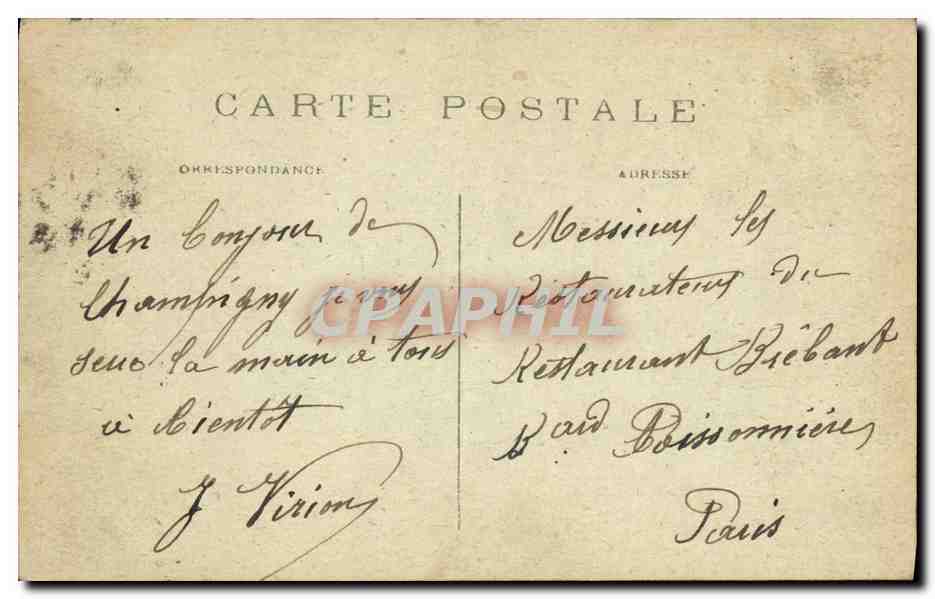 CARTE POSTALE
ORRESPONDANCE
Un Bonjour de
Champigny je vous
serre la main à tous
à bientôt
J Virion
ADRESSE
Messieurs les
Restaurateurs du
Restaurant Brébant
Bard Poissonnière
Paris
CPAPHIL